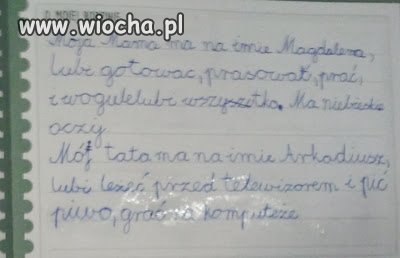 www.wiocha.pl
O MOJEJ RODZINIE
Moja Mama ma na imie Magdalena,
lubi gotowac, prasować, prać,
i wogulelubi wszyszytko. Ma niebieskie
oczy.
Mój tata ma na imie Arkadiusz,
lubi leżeć przed telewizorem i pić
piwo, grać na komputeże